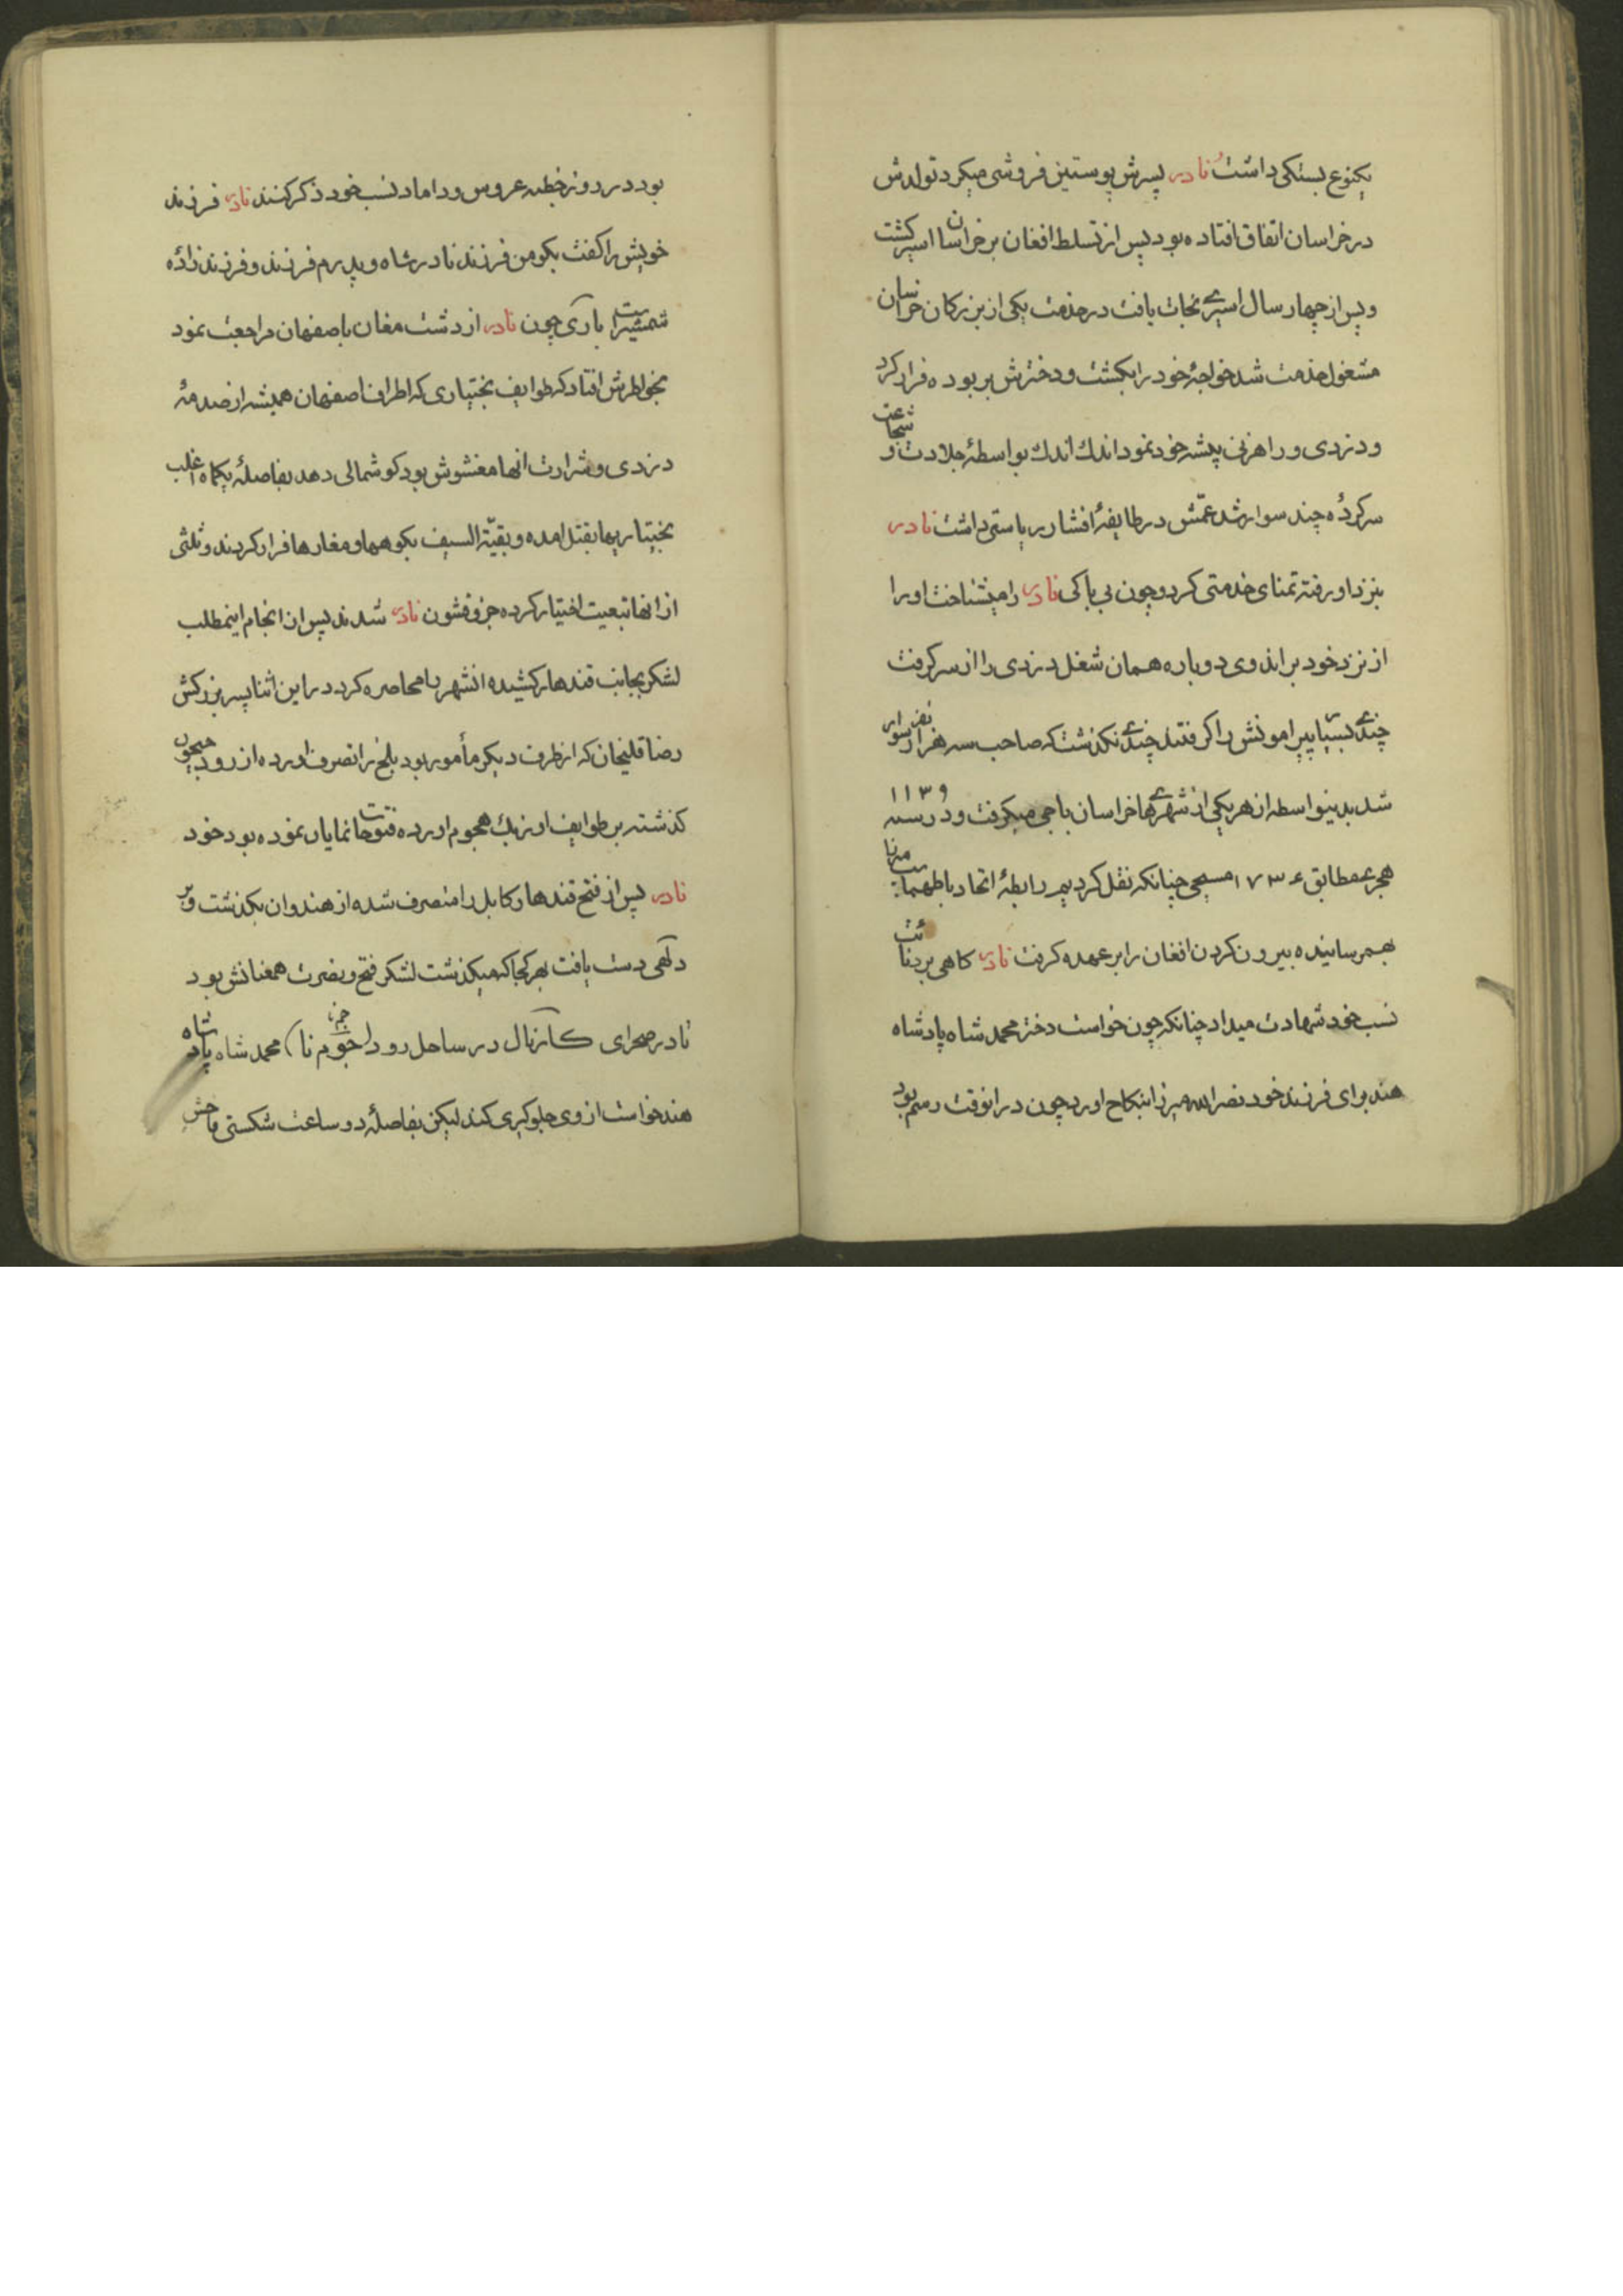 یکنوع بستکی داشت نادر پسرش پوستین فروشی میکرد تولدش
در خراسان اتفاق افتاده بود پس از تسلط افغان بر خراسان اسیر کشت
و پس از چهار سال اسیری نجات یافت در خدمت یکی از بزرکان خراسان
مشغول خدمت شد خواجهٔ خود را بکشت و دخترش بربوده فرار کرد
و دزدی و راهزنی پیشه خود نمود اندک اندک بواسطهٔ جلادت و شجاعت
سرکردهٔ چند سوار شد عمّش در طایفهٔ افشار ریاستی داشت نادر
بنزد او رفته تمنای خدمتی کرد و چون بی باکی نادر را میشناخت او را
از نزد خود براند وی دوباره همان شغل دزدی را از سر کرفت
چندی پیرامونش را کرفتند چندی نکذشت که صاحب سه هزار نفر سوار
شد بدینواسطه از هر یکی از شهرهای خراسان باجی میکرفت و در سنه ۱۱۳۹
هجری مطابق ۱۷۳۶ مسیحی چنانکه نقل کردیم رابطهٔ اتحاد با طهماسب میرزا
بهمرسانیده بیرون کردن افغان را بر عهده کرفت نادر کاهی بر دنائت
نسب خود شهادت میداد چنانکه چون خواست دختر محمد شاه پادشاه
هند برای فرزند خود نصرالله میرزا بنکاح اورد چون در انوقت رسم بود
بود در روز خطبه عروس و داماد نسب خود ذکر کنند نادر فرزند
خویش را کفت بکو من فرزند نادر شاه و پدرم فرزند و فرزند زادهٔ
شمشیر است باری چون نادر از دشت مغان باصفهان مراجعت نمود
بخواطرش افتاد که طوایف بختیاری که اطراف اصفهان همیشه از صدمهٔ
دزدی و شرارت انها مغشوش بود کوشمالی دهد بفاصلهٔ یکماه اغلب
بختیاریها بقتل امده و بقیّة السیف بکوهها و مغارها فرار کردند و ثلثی
از انها تبعیت اختیار کرده جزو قشون نادر شدند پس از انجام اینمطلب
لشکر بجانب قندهار کشیده انشهر را محاصره کرد در این اثنا پسر بزرکش
رضا قلیخان که از طرف دیکر مأمور بود بلخ را تصرف اورده از رود جیحون
کذشته بر طوایف اوزبک هجوم اورده فتوحات نمایان نموده بود خود
نادر پس از فتح قندهار کابل را متصرف شده از هندوان بکذشت و بر
دلهی دست یافت بهر کجا که میکذشت لشکر فتح و نصرت همعنانش بود
نادر صحرای کارنال در ساحل رود (جومنا) محمد شاه پادشاه
هند خواست از وی جلوکیری کند لیکن بفاصلهٔ دو ساعت شکستی فاحش